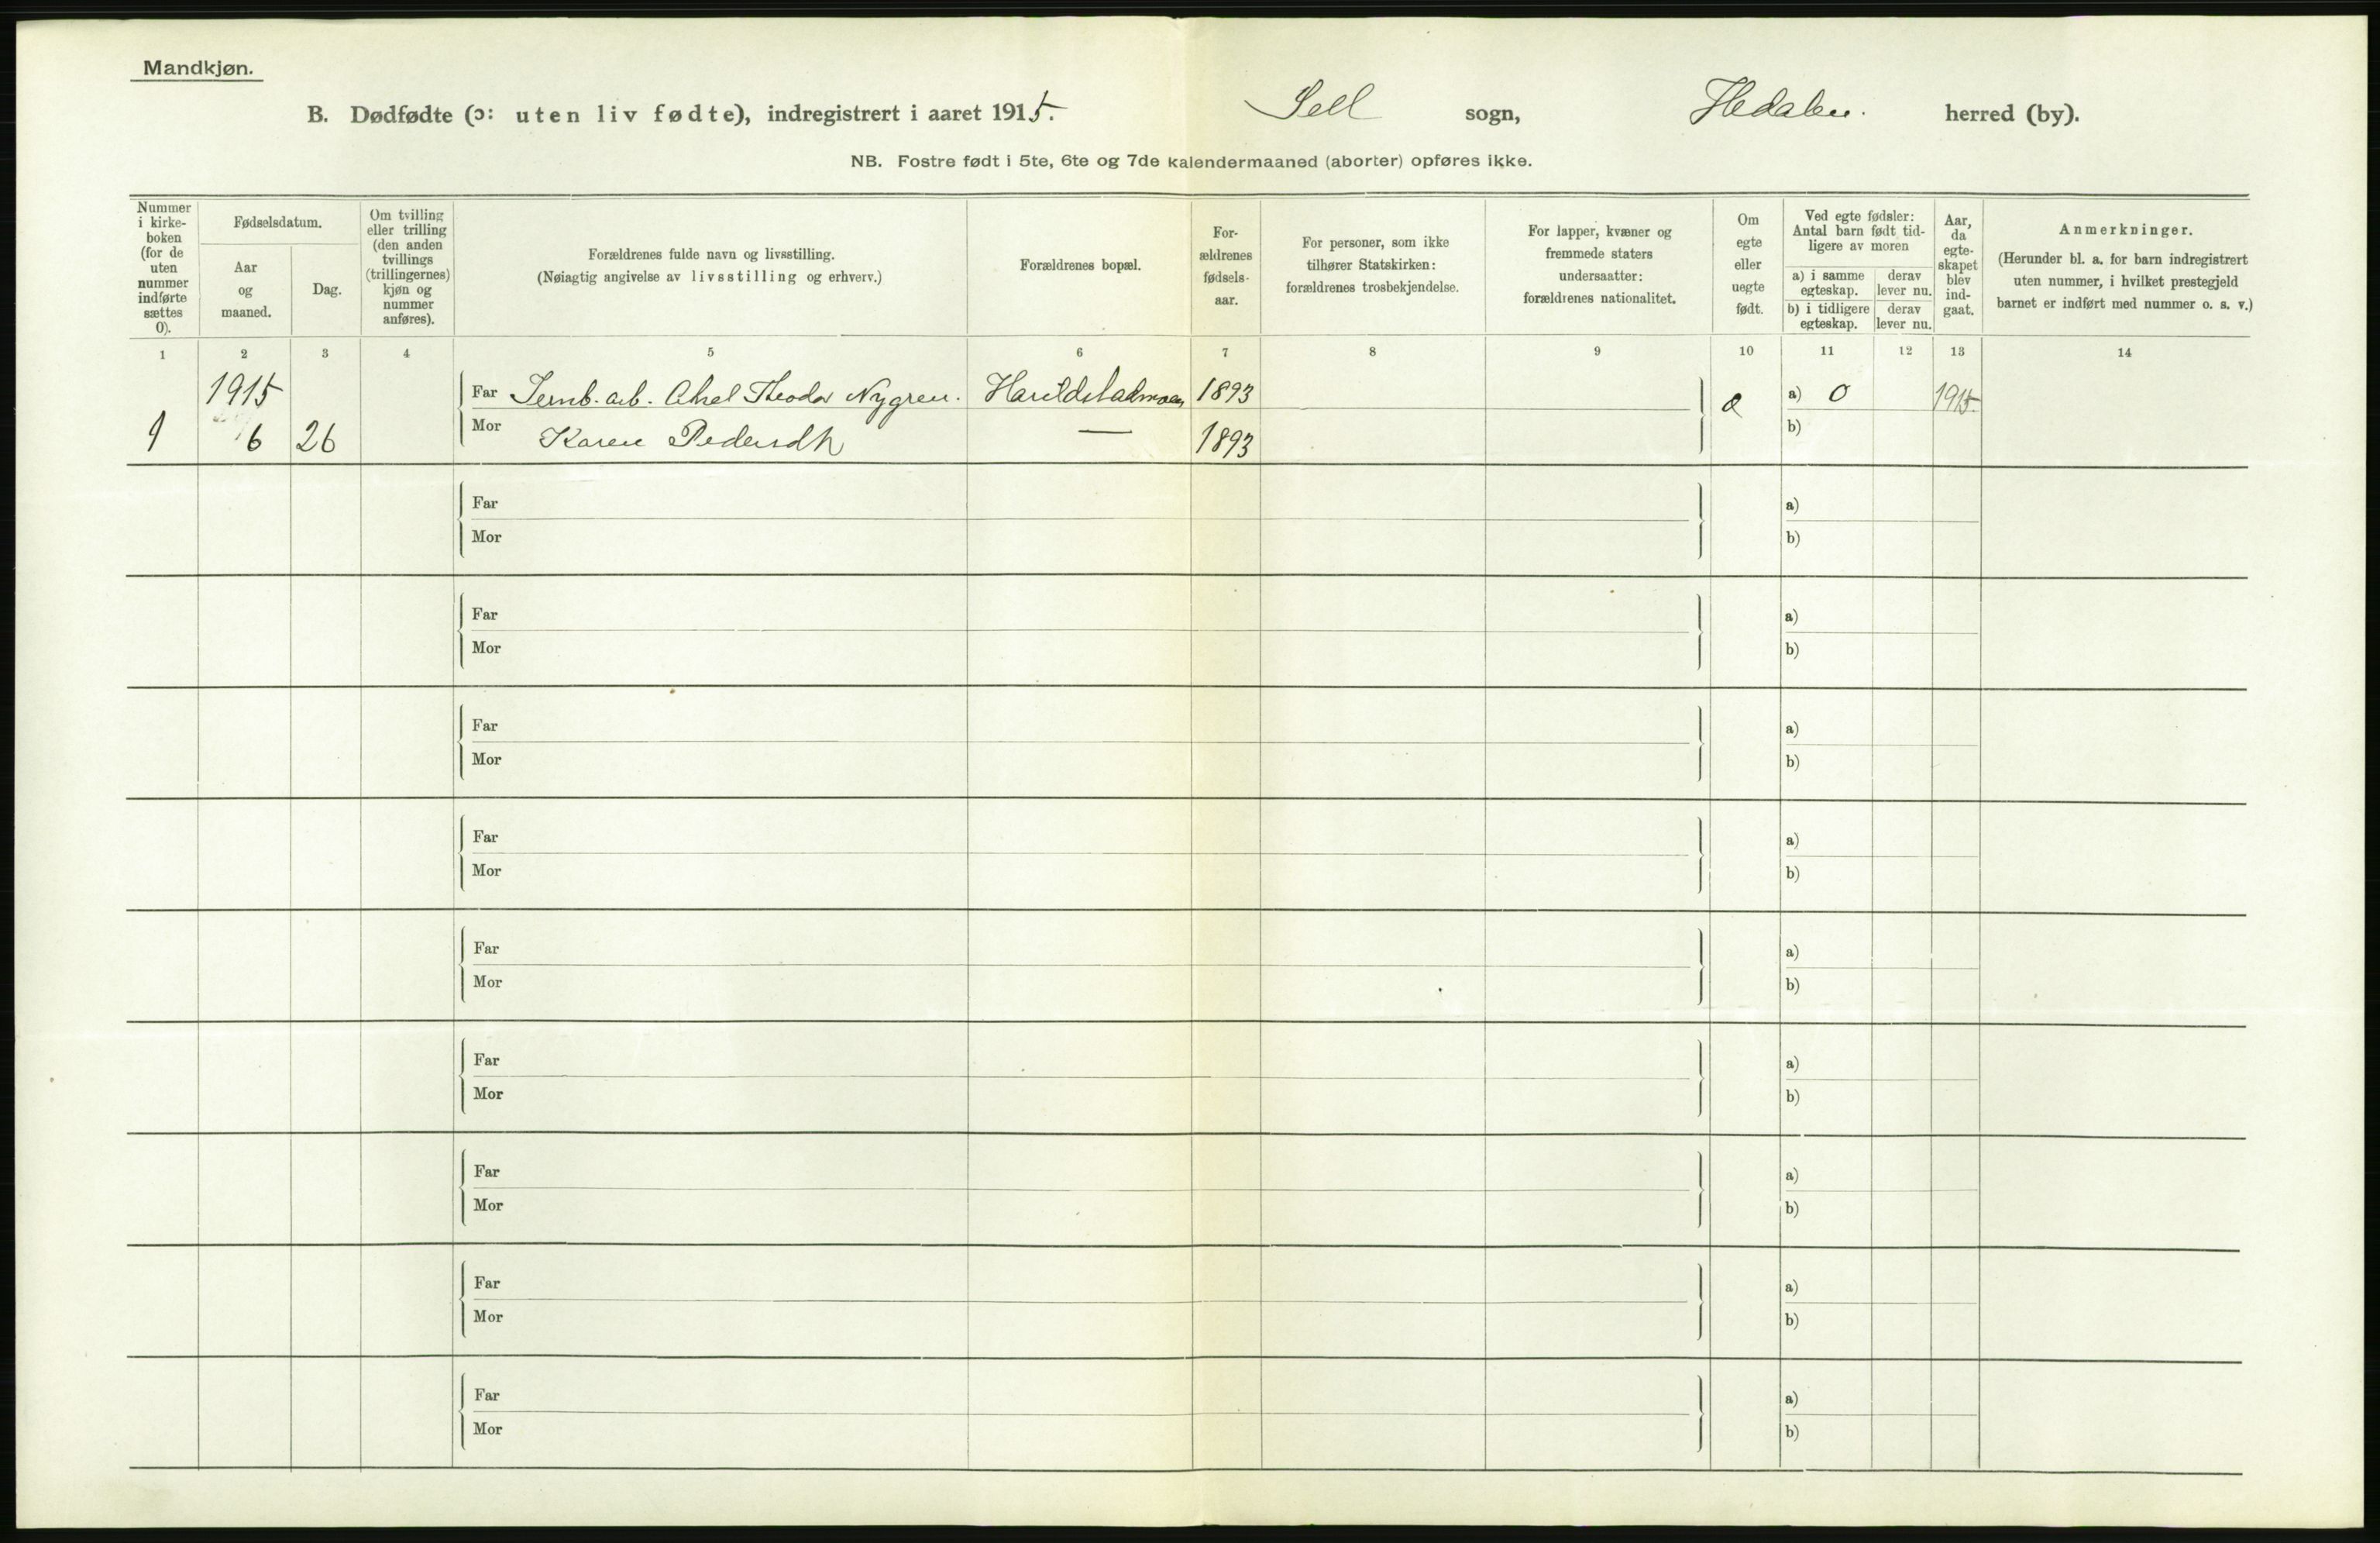 Mandkjøn.
B. Dødfødte (ɔ: uten liv fødte), indregistrert i aaret 1915. Sell sogn, Hedalen. herred (by).
NB. Fostre født i 5te, 6te og 7de kalendermaaned (aborter) opføres ikke.
Nummer
i kirke-
boken
(for de
uten
nummer
indførte
sættes
0).
Fødselsdatum.
Aar
og
maaned.
Dag.
Om tvilling
eller trilling
(den anden
tvillings
(trillingernes)
kjøn og
nummer
anføres).
Forældrenes fulde navn og livsstilling.
(Nøiagtig angivelse av livsstilling og erhverv.)
Forældrenes bopæl.
For-
ældrenes
fødsels-
aar.
For personer, som ikke
tilhører Statskirken:
forældrenes trosbekjendelse.
For lapper, kvæner og
fremmede staters
undersaatter:
forældrenes nationalitet.
Om
egte
eller
uegte
født.
Ved egte fødsler:
Antal barn født tid-
ligere av moren
a) i samme
egteskap.
derav
lever nu.
b) i tidligere
egteskap.
derav
lever nu.
Aar,
da
egte-
skapet
blev
ind-
gaat.
Anmerkninger.
(Herunder bl. a. for barn indregistrert
uten nummer, i hvilket prestegjeld
barnet er indført med nummer o. s. v.)
1 2 3 4 5 6 7 8 9 10 11 12 13 14
1915 Far Jernb. arb. Axel Theodor Nygren. 1893 e a) 0 1915
1 6 26 Mor Karen Pedersdtr — 1893 b)
Far a)
Mor b)
Far a)
Mor b)
Far a)
Mor b)
Far a)
Mor b)
Far a)
Mor b)
Far a)
Mor b)
Far a)
Mor b)
Far a)
Mor b)
Far a)
Mor b)